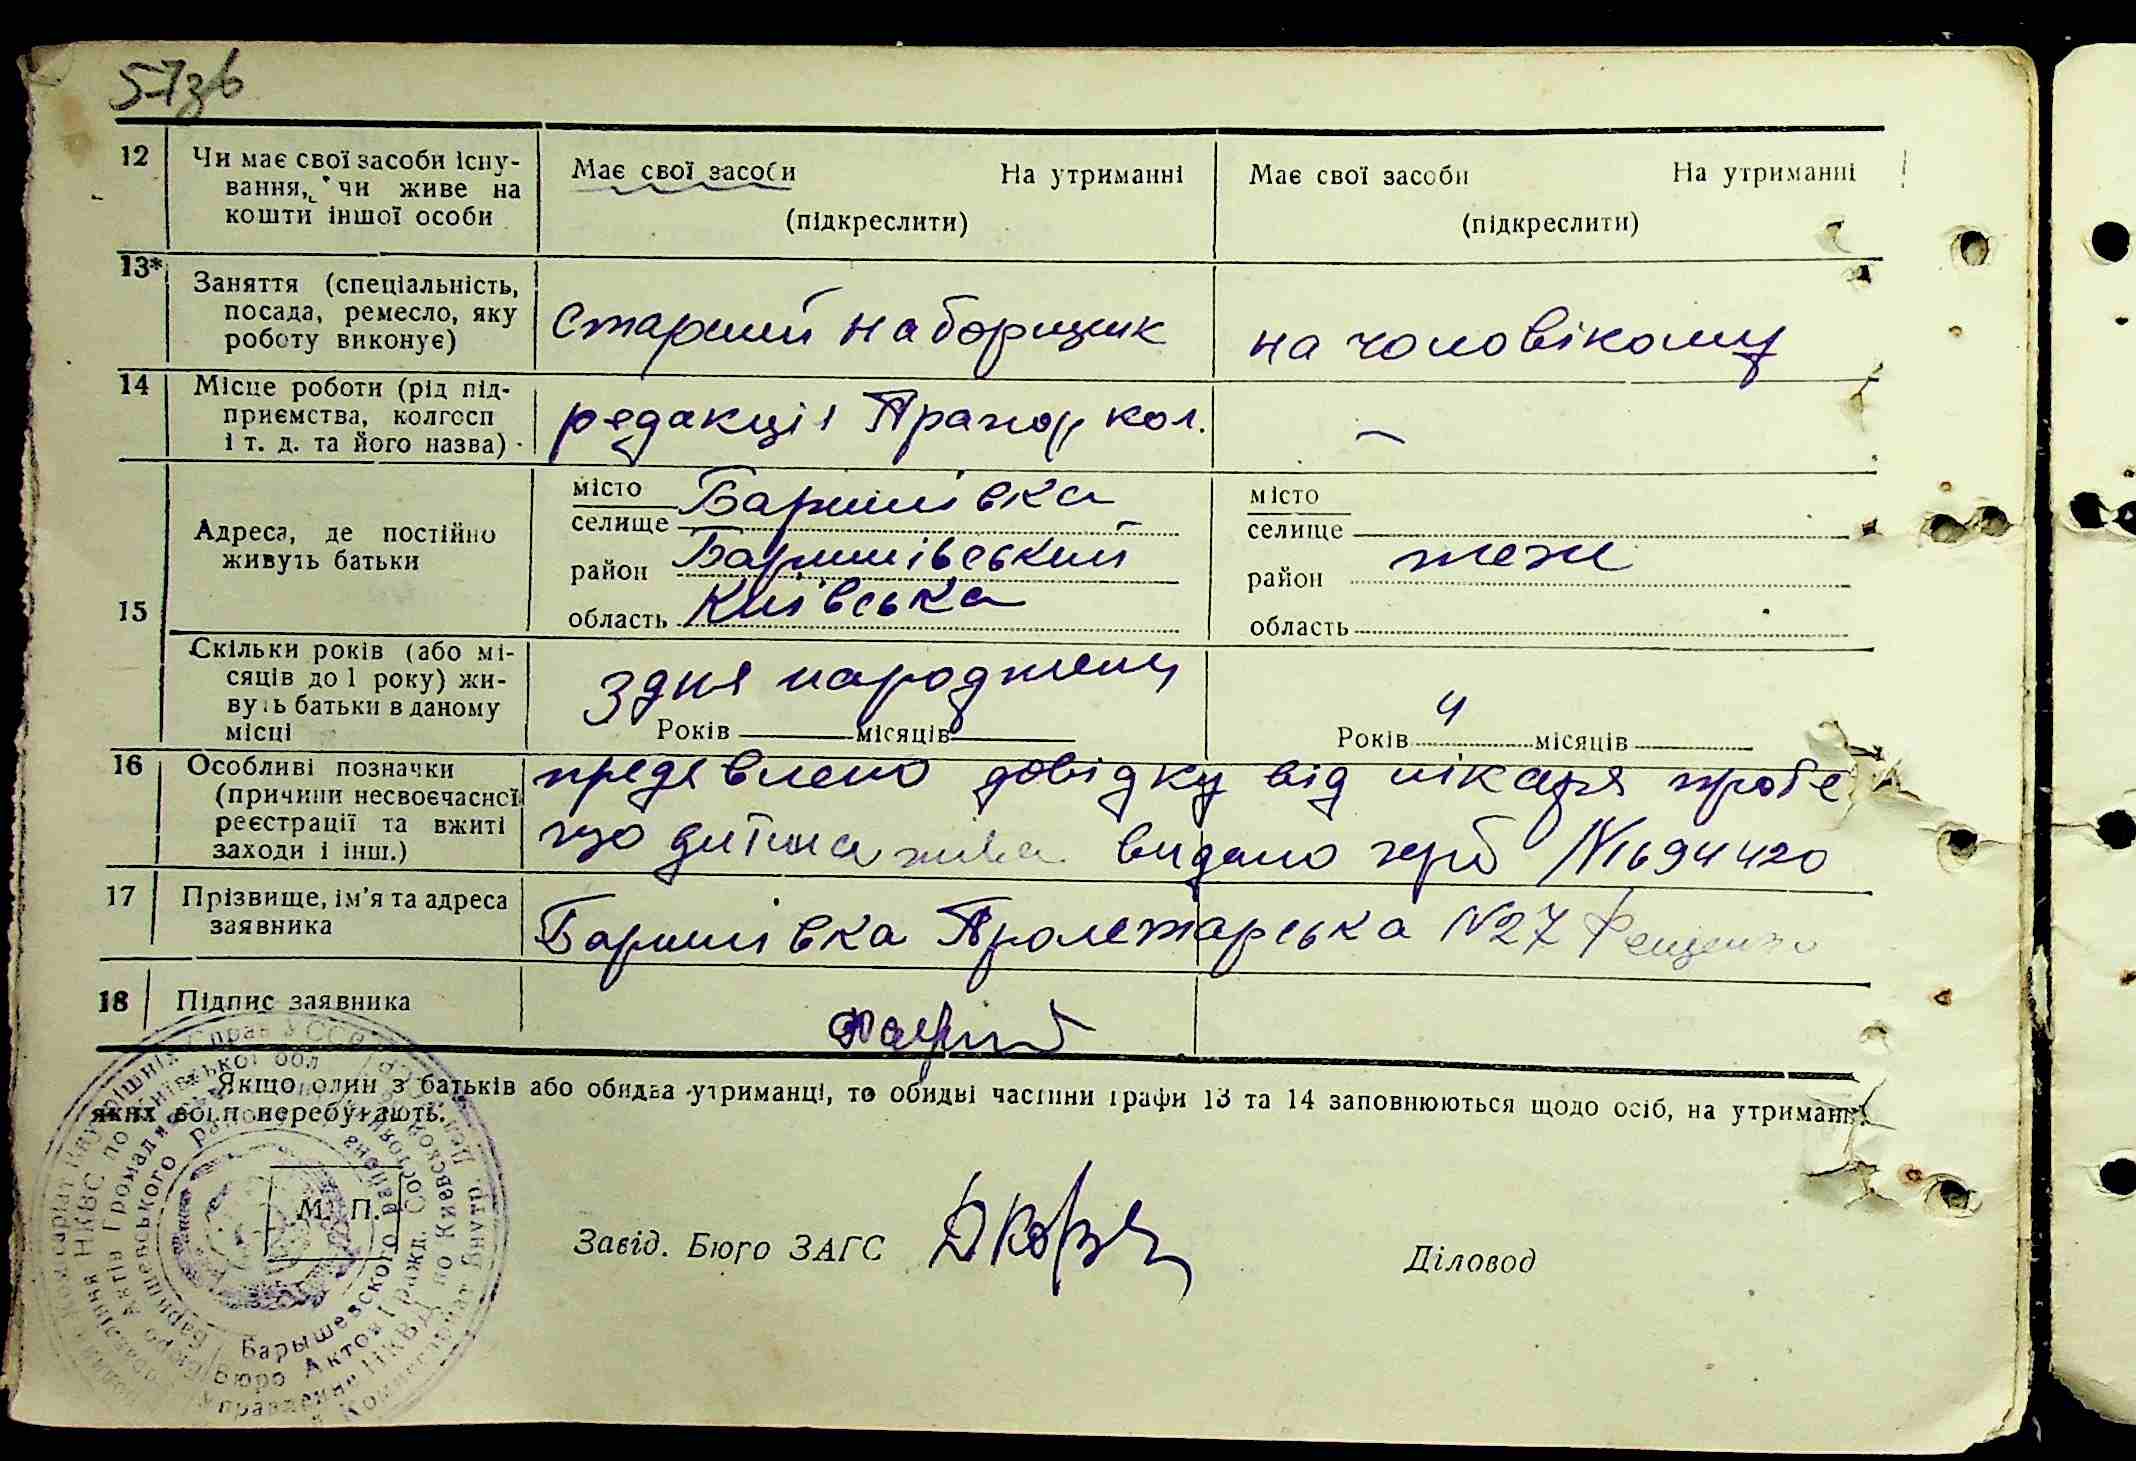 57зв
12 Чи має свої засоби існу-
вання, чи живе на
кошти іншої особи
Має свої засоби На утриманні
(підкреслити)
Має свої засоби На утриманні
(підкреслити)
13* Заняття (спеціальність,
посада, ремесло, яку
роботу виконує)
старший наборщик
на чоловікому
14 Місце роботи (рід під-
приємства, колгосп
і т. д. та його назва)
редакція Прапор кол.
—
15 Адреса, де постійно
живуть батьки
місто
селище Баришівка
район Баришівський
область Київська
місто
селище
район теж
область
Скільки років (або мі-
сяців до 1 року) жи-
вуть батьки в даному
місці
з дня народження
Років місяців
Років 4 місяців
16 Особливі позначки
(причини несвоєчасної
реєстрації та вжиті
заходи і інш.)
предявлено довідку від лікаря про те
що дитина жива видано герб №1694420
17 Прізвище, ім'я та адреса
заявника
Баришівка Пролетарська №27
18 Підпис заявника
Якщо один з батьків або обидва утриманці, то обидві частини графи 13 та 14 заповнюються щодо осіб, на утриманні
яких вони перебувають.
М. П.
Завід. Бюро ЗАГС
Діловод
Барышевского района
Бюро Актов Гражд. Состояния
Управление НКВД по Киевской